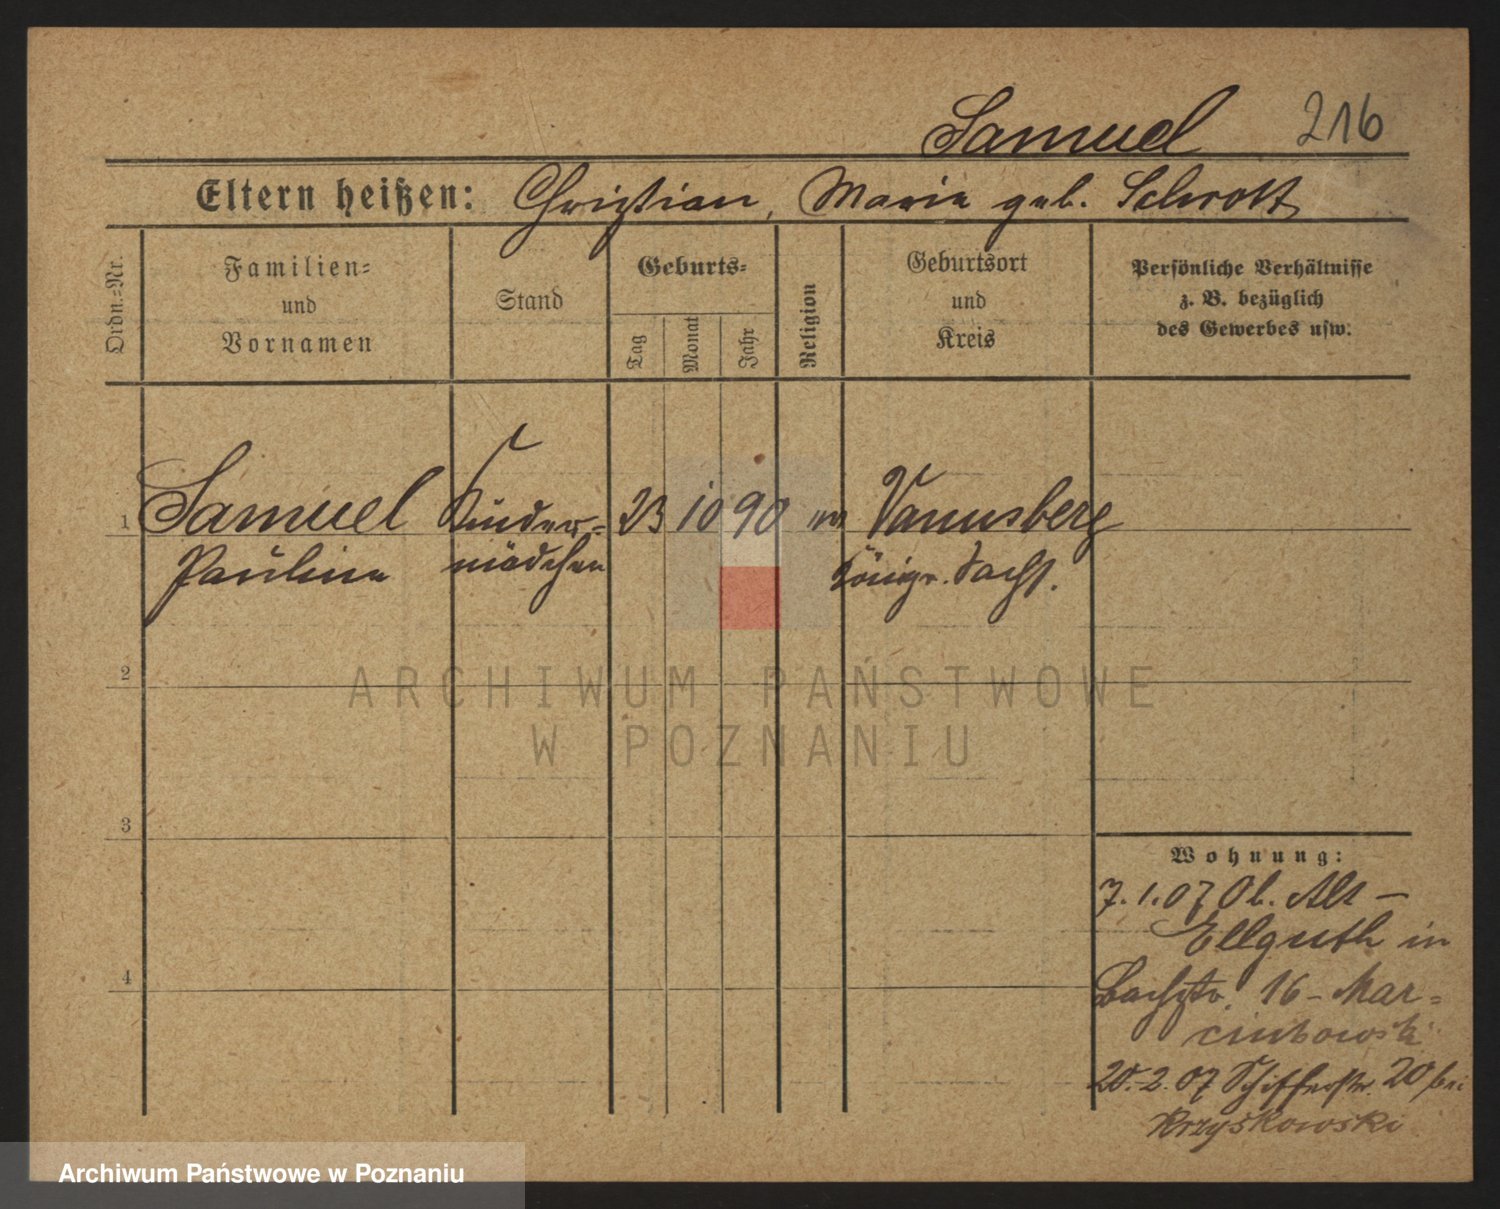 Samuel 216
Eltern heißen: Christian, Marie geb. Schrott
Ordn.-Nr.
Familien-
und
Vornamen
Stand
Geburts-
Tag
Monat
Jahr
Religion
Geburtsort
und
Kreis
Persönliche Verhältnisse
z. B. bezüglich
des Gewerbes usw.
1 Samuel Kinder- 23 10 90 Vannsberg
Pauline mädchen Königr. Sachs.
2
3
4
ARCHIWUM PAŃSTWOWE
W POZNANIU
Wohnung:
7. 1. 07 Ob. Alt-
Ellguth in
Bachstr. 16 - Mar-
cinkowski
20. 2. 07 Schifferstr. 20 bei
Krzyskowski
Archiwum Państwowe w Poznaniu